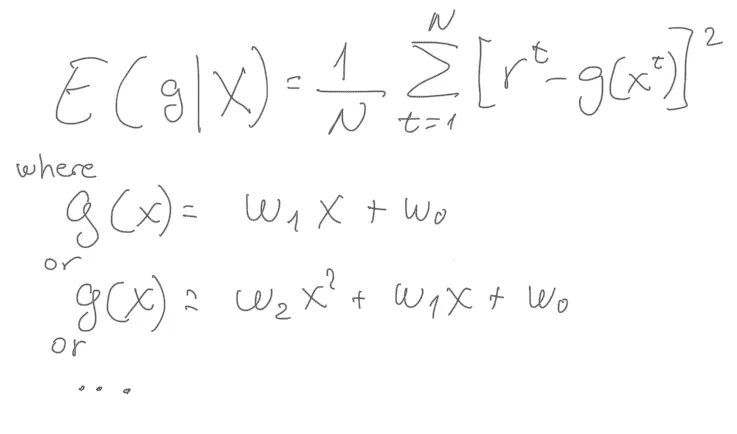 E(g|X) = 1/N ∑_{t=1}^{N} [r^t - g(x^t)]^2
where
g(x) = w_1 x + w_0
or
g(x) = w_2 x^2 + w_1 x + w_0
or
...